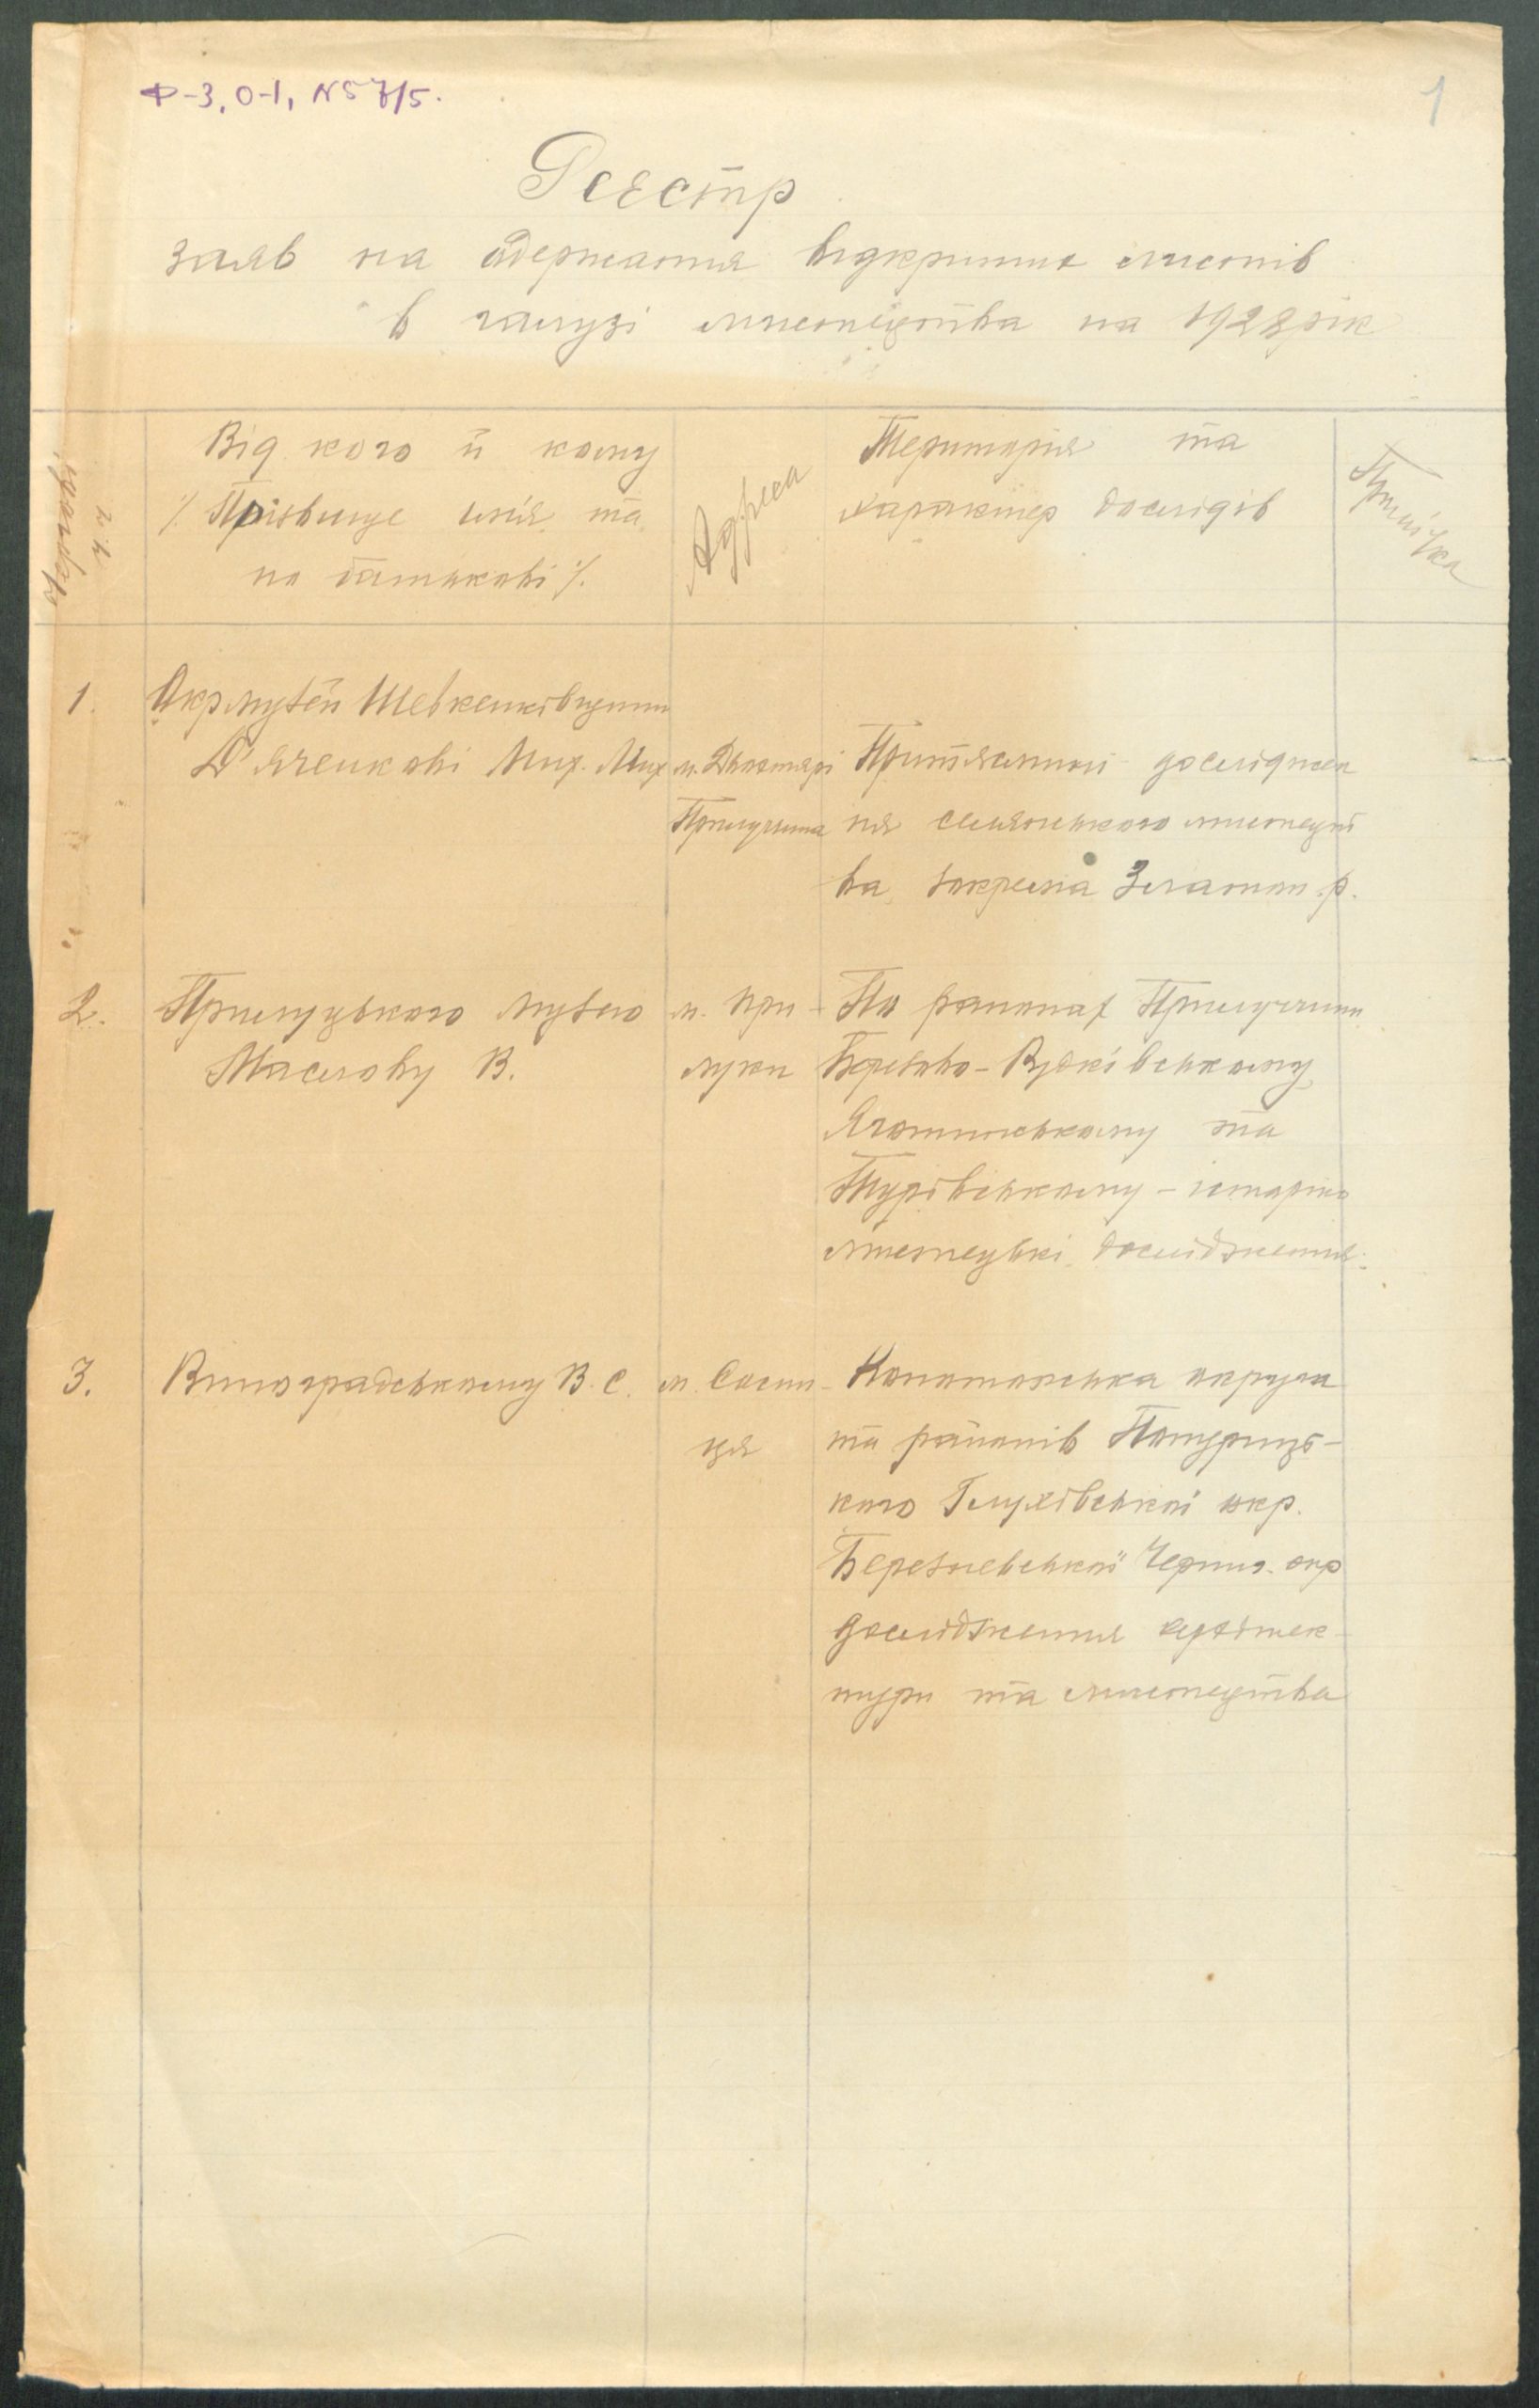 Ф-3, О-1, № 57/5.
1
Реєстр
заяв на одержання відкритих листів
в галузі мистецтва на 1928 рік
Від кого й кому
/. Прізвище ім'я та
по батькові /.
Адреса
Територія та
характер дослідів
Примітка
1.
Окрмузей Шевченківщини
Д'яченкові Мих. Мих
досліджен
ня селянського мистецт
ва, зокрема Златоп. р.
2.
Прилуцького музею
Маслову В.
м. При-
луки
По районах Прилуччини
Березово-Рудківському,
Яготинському та
Турівському - історико
мистецькі дослідження.
3.
Виноградському В. С.
м. Сосни-
ця
Конотопська округа
та районів
кого Глухівської окр.
Березневської Черниг. окр
дослідження архітек-
тури та мистецтва